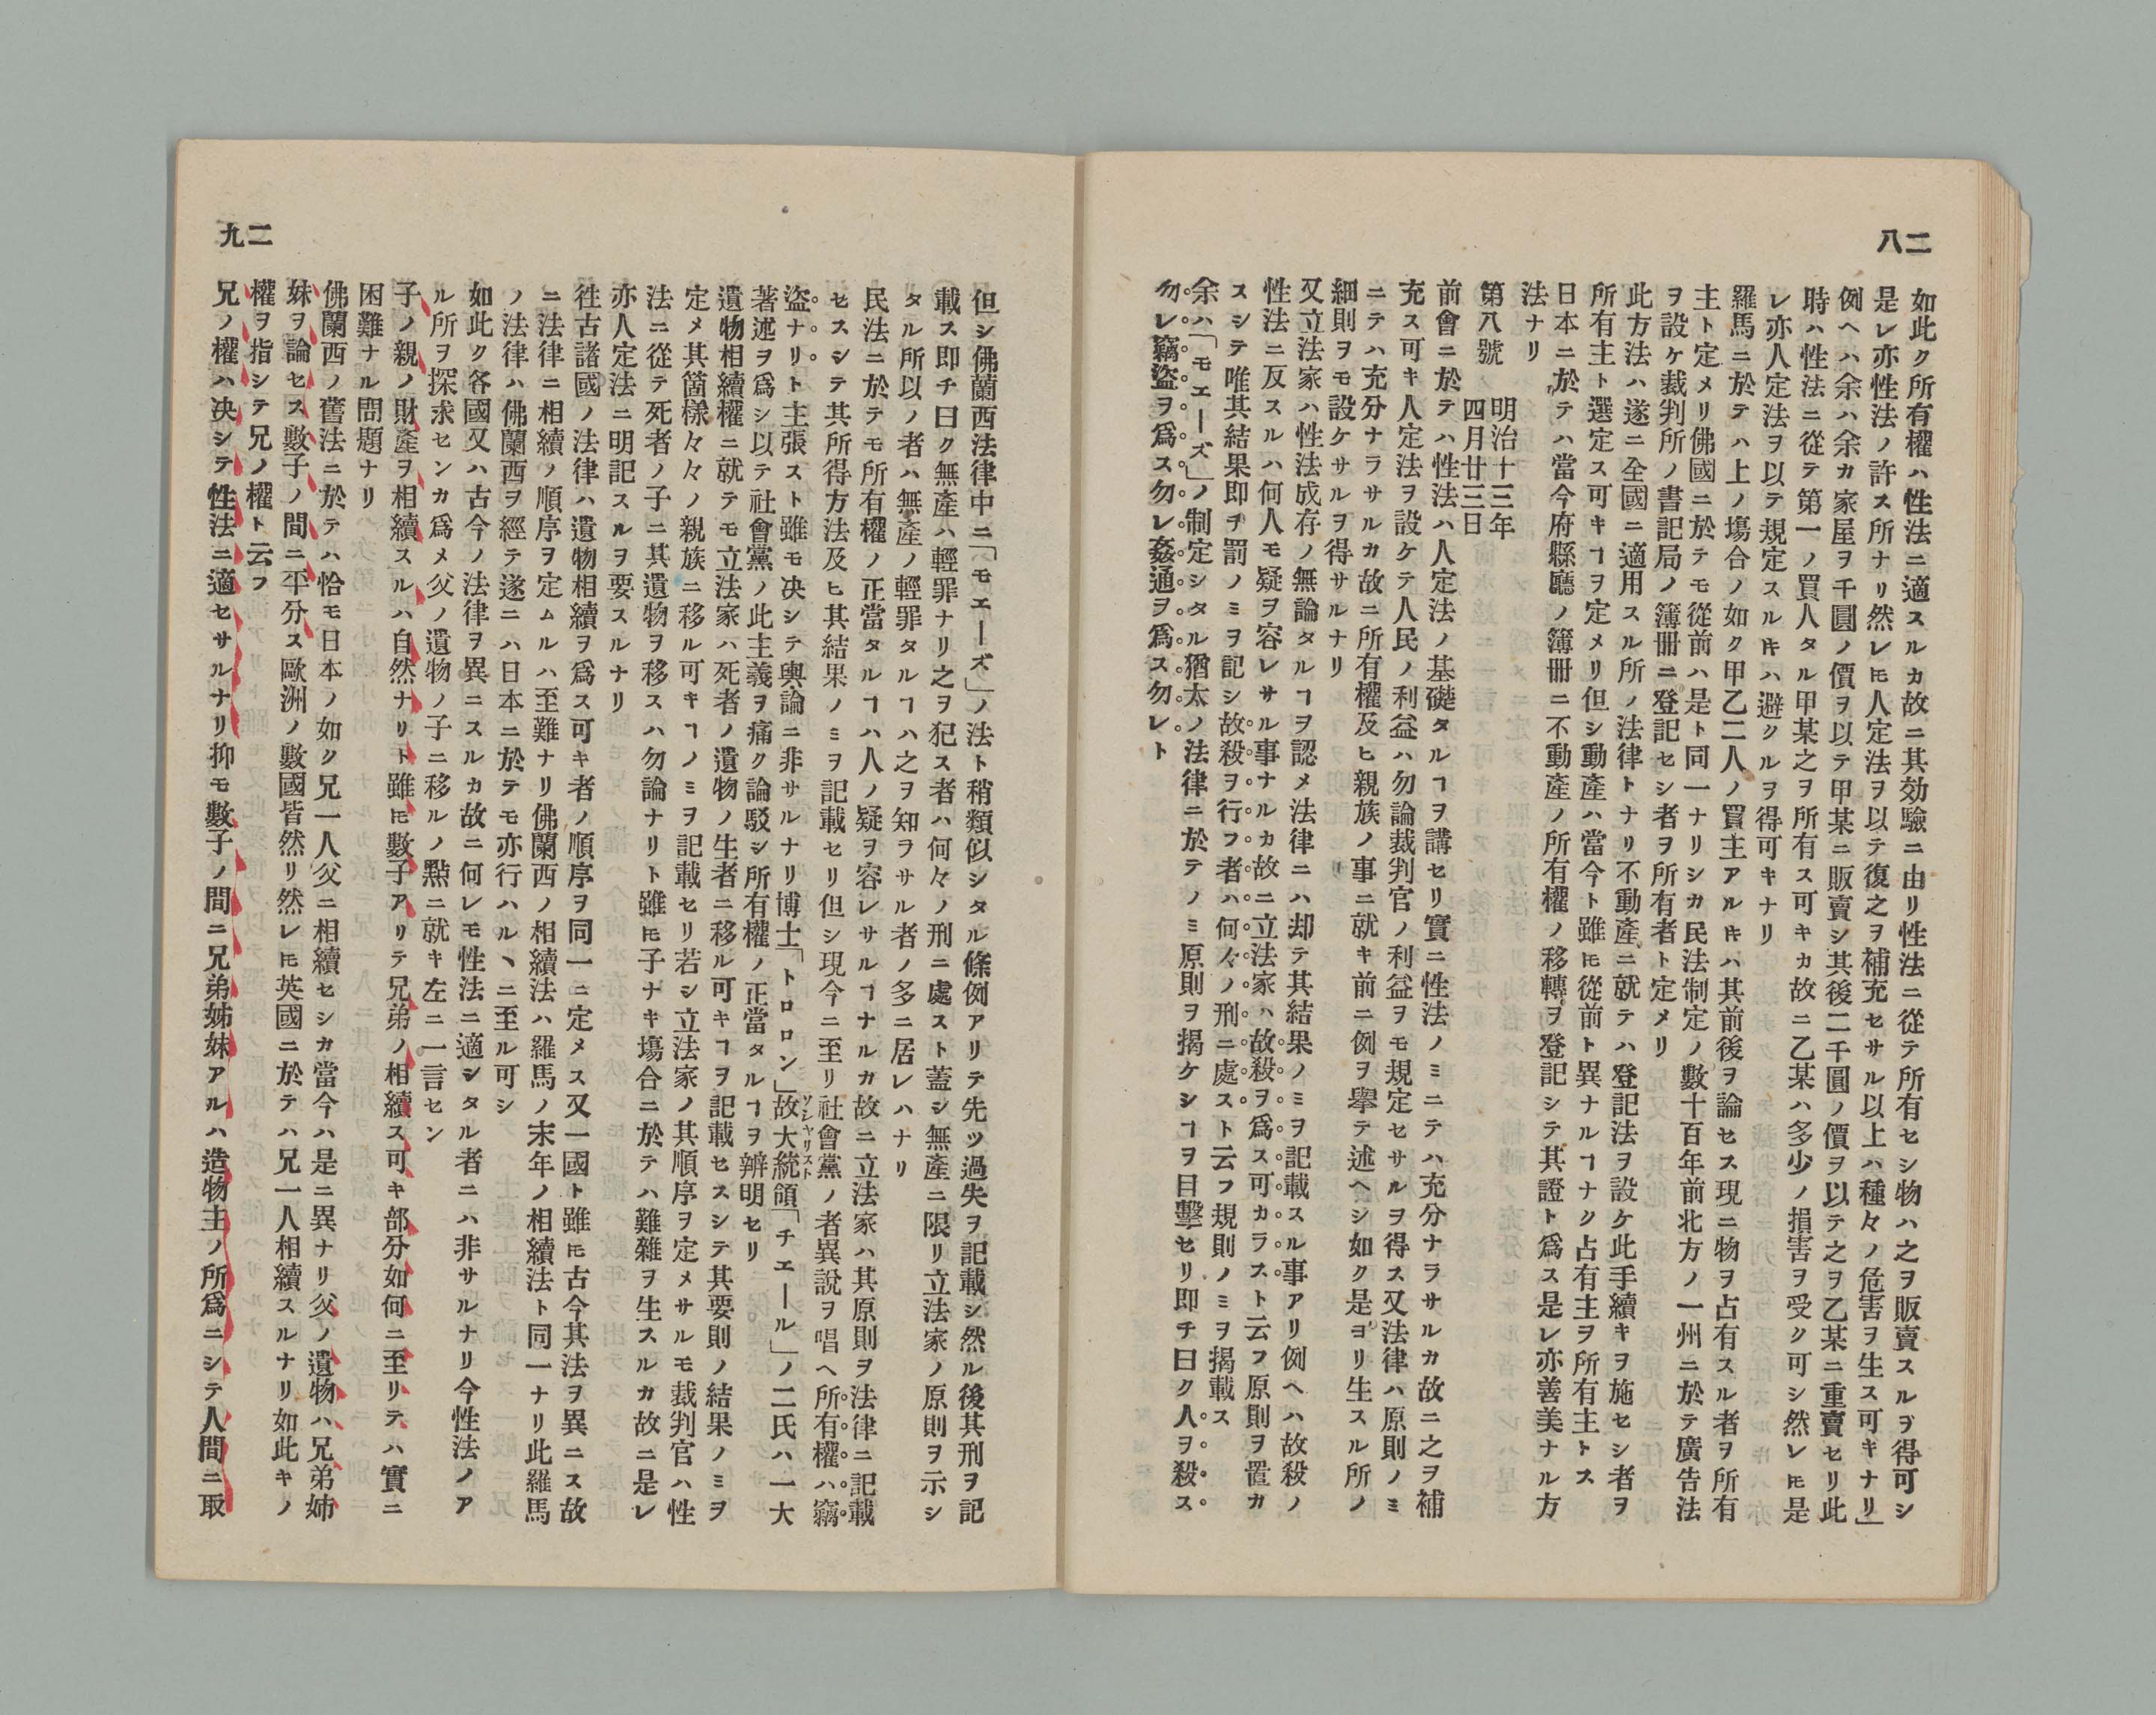 二八
如此ク所有權ハ性法ニ適スルカ故ニ其効驗ニ由リ性法ニ從テ所有セシ物ハ之ヲ販賣スルヲ得可シ
是レ亦性法ノ許ス所ナリ然レ𪜈人定法ヲ以テ復之ヲ補充セサル以上ハ種々ノ危害ヲ生ス可キナリ」
例ヘハ余ハ余カ家屋ヲ千圓ノ價ヲ以テ甲某ニ販賣シ其後二千圓ノ價ヲ以テ之ヲ乙某ニ重賣セリ此
時ハ性法ニ從テ第一ノ買人タル甲某之ヲ所有ス可キカ故ニ乙某ハ多少ノ損害ヲ受ク可シ然レ𪜈是
レ亦人定法ヲ以テ規定スル𪜈ハ避クルヲ得可キナリ
羅馬ニ於テハ上ノ塲合ノ如ク甲乙二人ノ買主アル𪜈ハ其前後ヲ論セス現ニ物ヲ占有スル者ヲ所有
主ト定メリ佛國ニ於テモ從前ハ是ト同一ナリシカ民法制定ノ數十百年前北方ノ一州ニ於テ廣告法
ヲ設ケ裁判所ノ書記局ノ簿冊ニ登記セシ者ヲ所有者ト定メリ
此方法ハ遂ニ全國ニ適用スル所ノ法律トナリ不動產ニ就テハ登記法ヲ設ケ此手續キヲ施セシ者ヲ
所有主ト選定ス可キヿヲ定メリ但シ動產ハ當今ト雖𪜈從前ト異ナルヿナク占有主ヲ所有主トス
日本ニ於テハ當今府縣廳ノ簿冊ニ不動產ノ所有權ノ移轉ヲ登記シテ其證ト爲ス是レ亦善美ナル方
法ナリ
第八號 明治十三年四月廿三日
前會ニ於テハ性法ハ人定法ノ基礎タルヿヲ講セリ實ニ性法ノミニテハ充分ナラサルカ故ニ之ヲ補
充ス可キ人定法ヲ設ケテ人民ノ利益ハ勿論裁判官ノ利益ヲモ規定セサルヲ得ス又法律ハ原則ノミ
ニテハ充分ナラサルカ故ニ所有權及ヒ親族ノ事ニ就キ前ニ例ヲ擧テ述ヘシ如ク是ヨリ生スル所ノ
細則ヲモ設ケサルヲ得サルナリ
又立法家ハ性法成存ノ無論タルヿヲ認メ法律ニハ却テ其結果ノミヲ記載スル事アリ例ヘハ故殺ノ
性法ニ反スルハ何人モ疑ヲ容レサル事ナルカ故ニ立法家ハ故殺ヲ爲ス可カラスト云フ原則ヲ置カ
スシテ唯其結果即チ罰ノミヲ記シ故殺ヲ行フ者ハ何々ノ刑ニ處スト云フ規則ノミヲ揭載ス
余ハ「モエーズ」ノ制定シタル猶太ノ法律ニ於テノミ原則ヲ揭ケシヿヲ目擊セリ即チ曰ク人ヲ殺ス
勿レ竊盜ヲ爲ス勿レ姦通ヲ爲ス勿レト
二九
但シ佛蘭西法律中ニ「モエーズ」ノ法ト稍類似シタル條例アリテ先ツ過失ヲ記載シ然ル後其刑ヲ記
載ス即チ曰ク無產ハ輕罪ナリ之ヲ犯ス者ハ何々ノ刑ニ處スト蓋シ無產ニ限リ立法家ノ原則ヲ示シ
タル所以ノ者ハ無產ノ輕罪タルヿハ之ヲ知ヲサル者ノ多ニ居レハナリ
民法ニ於テモ所有權ノ正當タルヿハ人ノ疑ヲ容レサルヿナルカ故ニ立法家ハ其原則ヲ法律ニ記載
セスシテ其所得方法及ヒ其結果ノミヲ記載セリ但シ現今ニ至リ社會黨ノ者異說ヲ唱ヘ所有權ハ竊
ソシヤリスト
盜ナリト主張スト雖モ决シテ輿論ニ非サルナリ博士「トロロン」故大統領「チエール」ノ二氏ハ一大
著述ヲ爲シ以テ社會黨ノ此主義ヲ痛ク論駁シ所有權ノ正當タルヿヲ辨明セリ
遺物相續權ニ就テモ立法家ハ死者ノ遺物ノ生者ニ移ル可キヿヲ記載セスシテ其要則ノ結果ノミヲ
定メ其箇樣々々ノ親族ニ移ル可キヿノミヲ記載セリ若シ立法家ノ其順序ヲ定メサルモ裁判官ハ性
法ニ從テ死者ノ子ニ其遺物ヲ移スハ勿論ナリト雖𪜈子ナキ塲合ニ於テハ難雜ヲ生スルカ故ニ是レ
亦人定法ニ明記スルヲ要スルナリ
徃古諸國ノ法律ハ遺物相續ヲ爲ス可キ者ノ順序ヲ同一ニ定メス又一國ト雖𪜈古今其法ヲ異ニス故
ニ法律ニ相續ノ順序ヲ定ムルハ至難ナリ佛蘭西ノ相續法ハ羅馬ノ末年ノ相續法ト同一ナリ此羅馬
ノ法律ハ佛蘭西ヲ經テ遂ニハ日本ニ於テモ亦行ハルヽニ至ル可シ
如此ク各國又ハ古今ノ法律ヲ異ニスルカ故ニ何レモ性法ニ適シタル者ニハ非サルナリ今性法ノア
ル所ヲ探求センカ爲メ父ノ遺物ノ子ニ移ルノ㸃ニ就キ左ニ一言セン
子ノ親ノ財產ヲ相續スルハ自然ナリト雖𪜈數子アリテ兄弟ノ相續ス可キ部分如何ニ至リテハ實ニ
困難ナル問題ナリ
佛蘭西ノ舊法ニ於テハ恰モ日本ノ如ク兄一人父ニ相續セシカ當今ハ是ニ異ナリ父ノ遺物ハ兄弟姉
妹ヲ論セス數子ノ間ニ平分ス歐洲ノ數國皆然リ然レ𪜈英國ニ於テハ兄一人相續スルナリ如此キノ
權ヲ指シテ兄ノ權ト云フ
兄ノ權ハ决シテ性法ニ適セサルナリ抑モ數子ノ間ニ兄弟姊妹アルハ造物主ノ所爲ニシテ人間ニ取